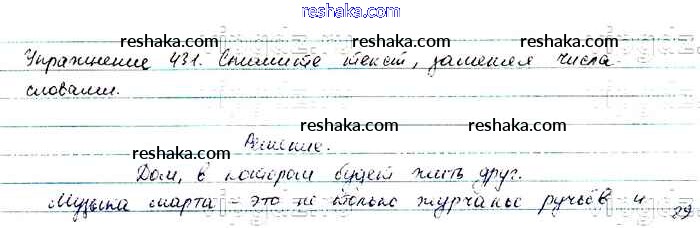 reshaka.com
Упражнение 431. Спишите текст, заменяя числа
словами.
reshaka.com reshaka.com reshaka.com
Решение.
reshaka.com reshaka.com
Дом, в котором будет жить друг.
Музыка марта – это не только журчанье ручьёв и
reshaka.com reshaka.com reshaka.com